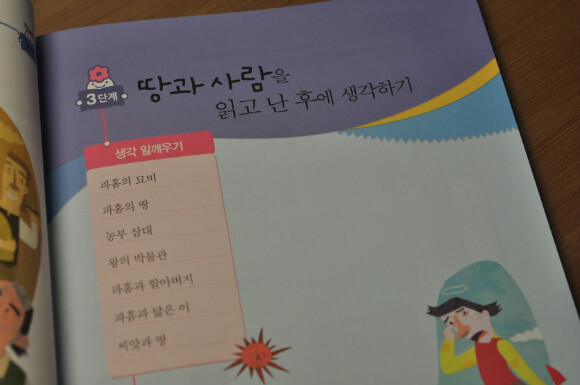 3단계
땅과 사람을
읽고 난 후에 생각하기
생각 일깨우기
파홈의 묘비
파홈의 땅
농부 삼대
왕의 박물관
파홈과 할아버지
파홈과 닮은 이
씨앗과 땅